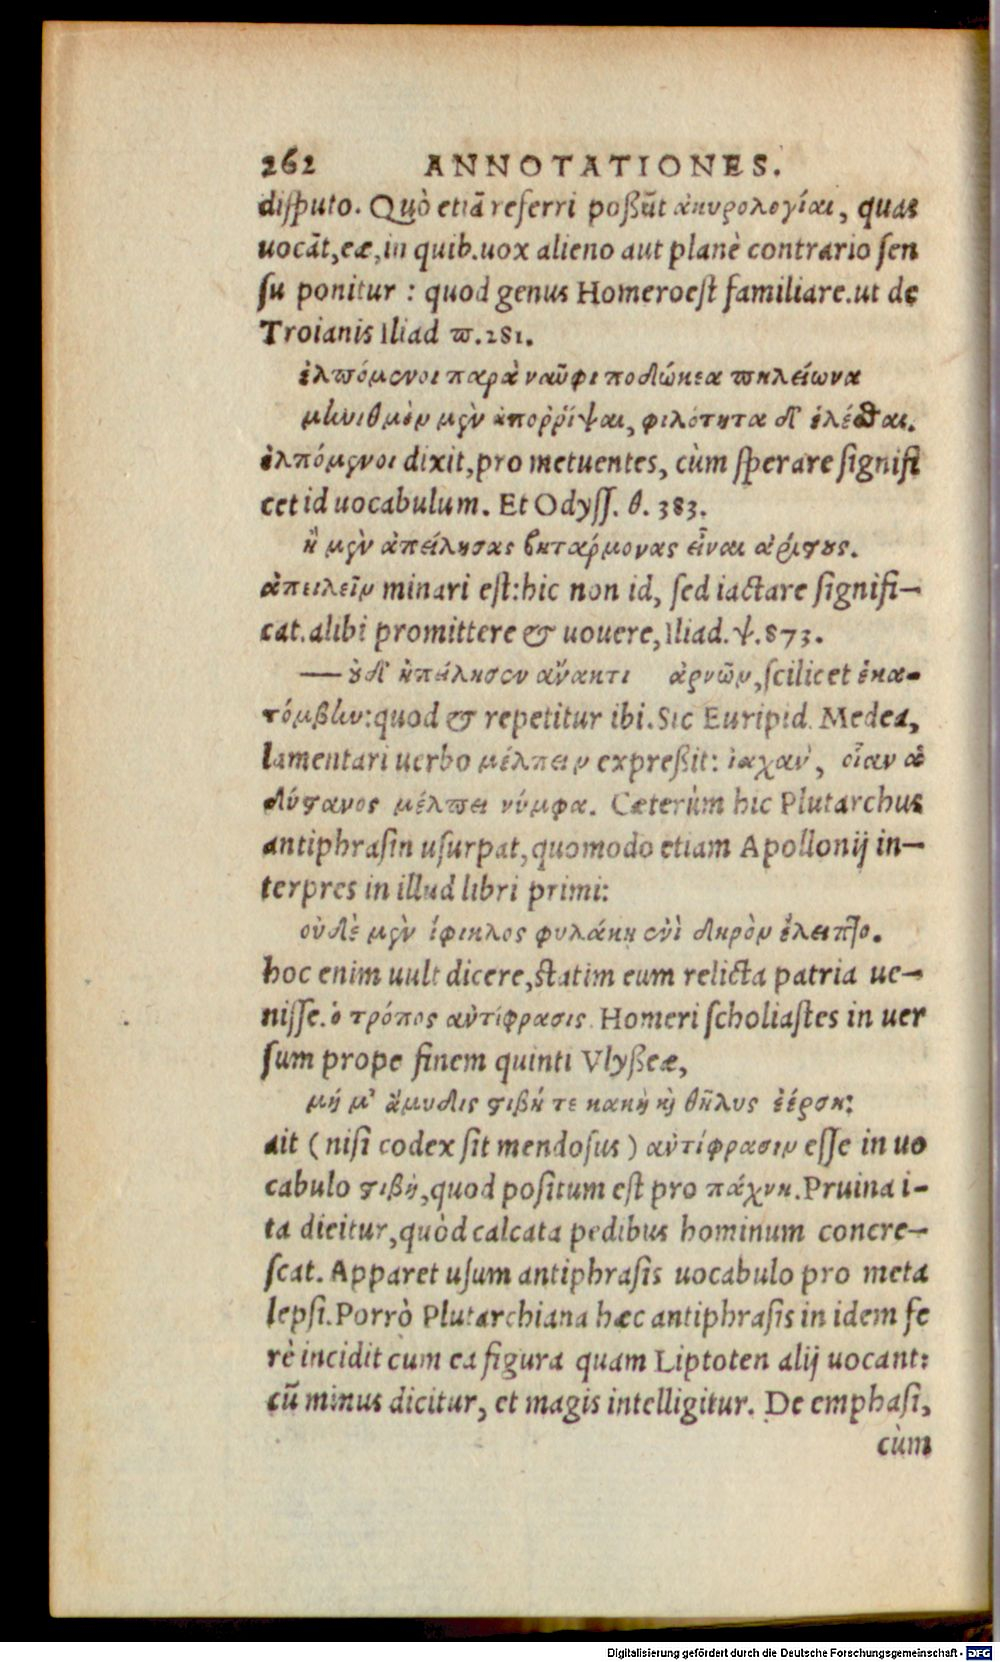 262 ANNOTATIONES.
disputo. Quò etiā referri possūt ἀκυρολογίαι, quas
uocāt, eæ, in quib. uox alieno aut planè contrario sen
su ponitur : quod genus Homero est familiare. ut de
Troianis Iliad ϖ. 281.
ἐλπόμενοι παρὰ ναῦφι ποδώκεα πηλείωνα
μηνιθμὸν μὲν ἀποῤῥίψαι, φιλότητα δ' ἑλέσθαι.
ἐλπόμενοι dixit, pro metuentes, cùm sperare signifi
cet id uocabulum. Et Odyss. θ. 383.
ἢ μὲν ἀπείλησας βητάρμονας εἶναι ἀρίστους.
ἀπειλεῖν minari est: hic non id, sed iactare signifi-
cat. alibi promittere & uouere, Iliad. ψ. 873.
— οὐδ' ἠπείλησεν ἄνακτι ἀρνῶν, scilicet ἑκα-
τόμβην: quod & repetitur ibi. Sic Euripid. Medea,
lamentari uerbo μέλπειν expressit: ἰαχὰν, οἵαν ἁ
δύστανος μέλπει νύμφα. Cæterùm hic Plutarchus
antiphrasin usurpat, quomodo etiam Apollonij in-
terpres in illud libri primi:
οὐδὲ μὲν ἴφικλος φυλάκῃ ἐνὶ δηρὸν ἔλειπτο.
hoc enim uult dicere, statim eum relicta patria ue-
nisse. ὁ τρόπος ἀντίφρασις. Homeri scholiastes in uer
sum prope finem quinti Vlysseæ,
μή μ' ἄμυδις στιβή τε κακὴ καὶ θῆλυς ἐέρση:
ait ( nisi codex sit mendosus ) ἀντίφρασιν esse in uo
cabulo στιβή, quod positum est pro πάχνη. Pruina i-
ta dicitur, quòd calcata pedibus hominum concre-
scat. Apparet usum antiphrasis uocabulo pro meta
lepsi. Porrò Plutarchiana hæc antiphrasis in idem fe
rè incidit cum ea figura quam Liptoten alij uocant:
cū minus dicitur, et magis intelligitur. De emphasi,
cùm
Digitalisierung gefördert durch die Deutsche Forschungsgemeinschaft - DFG